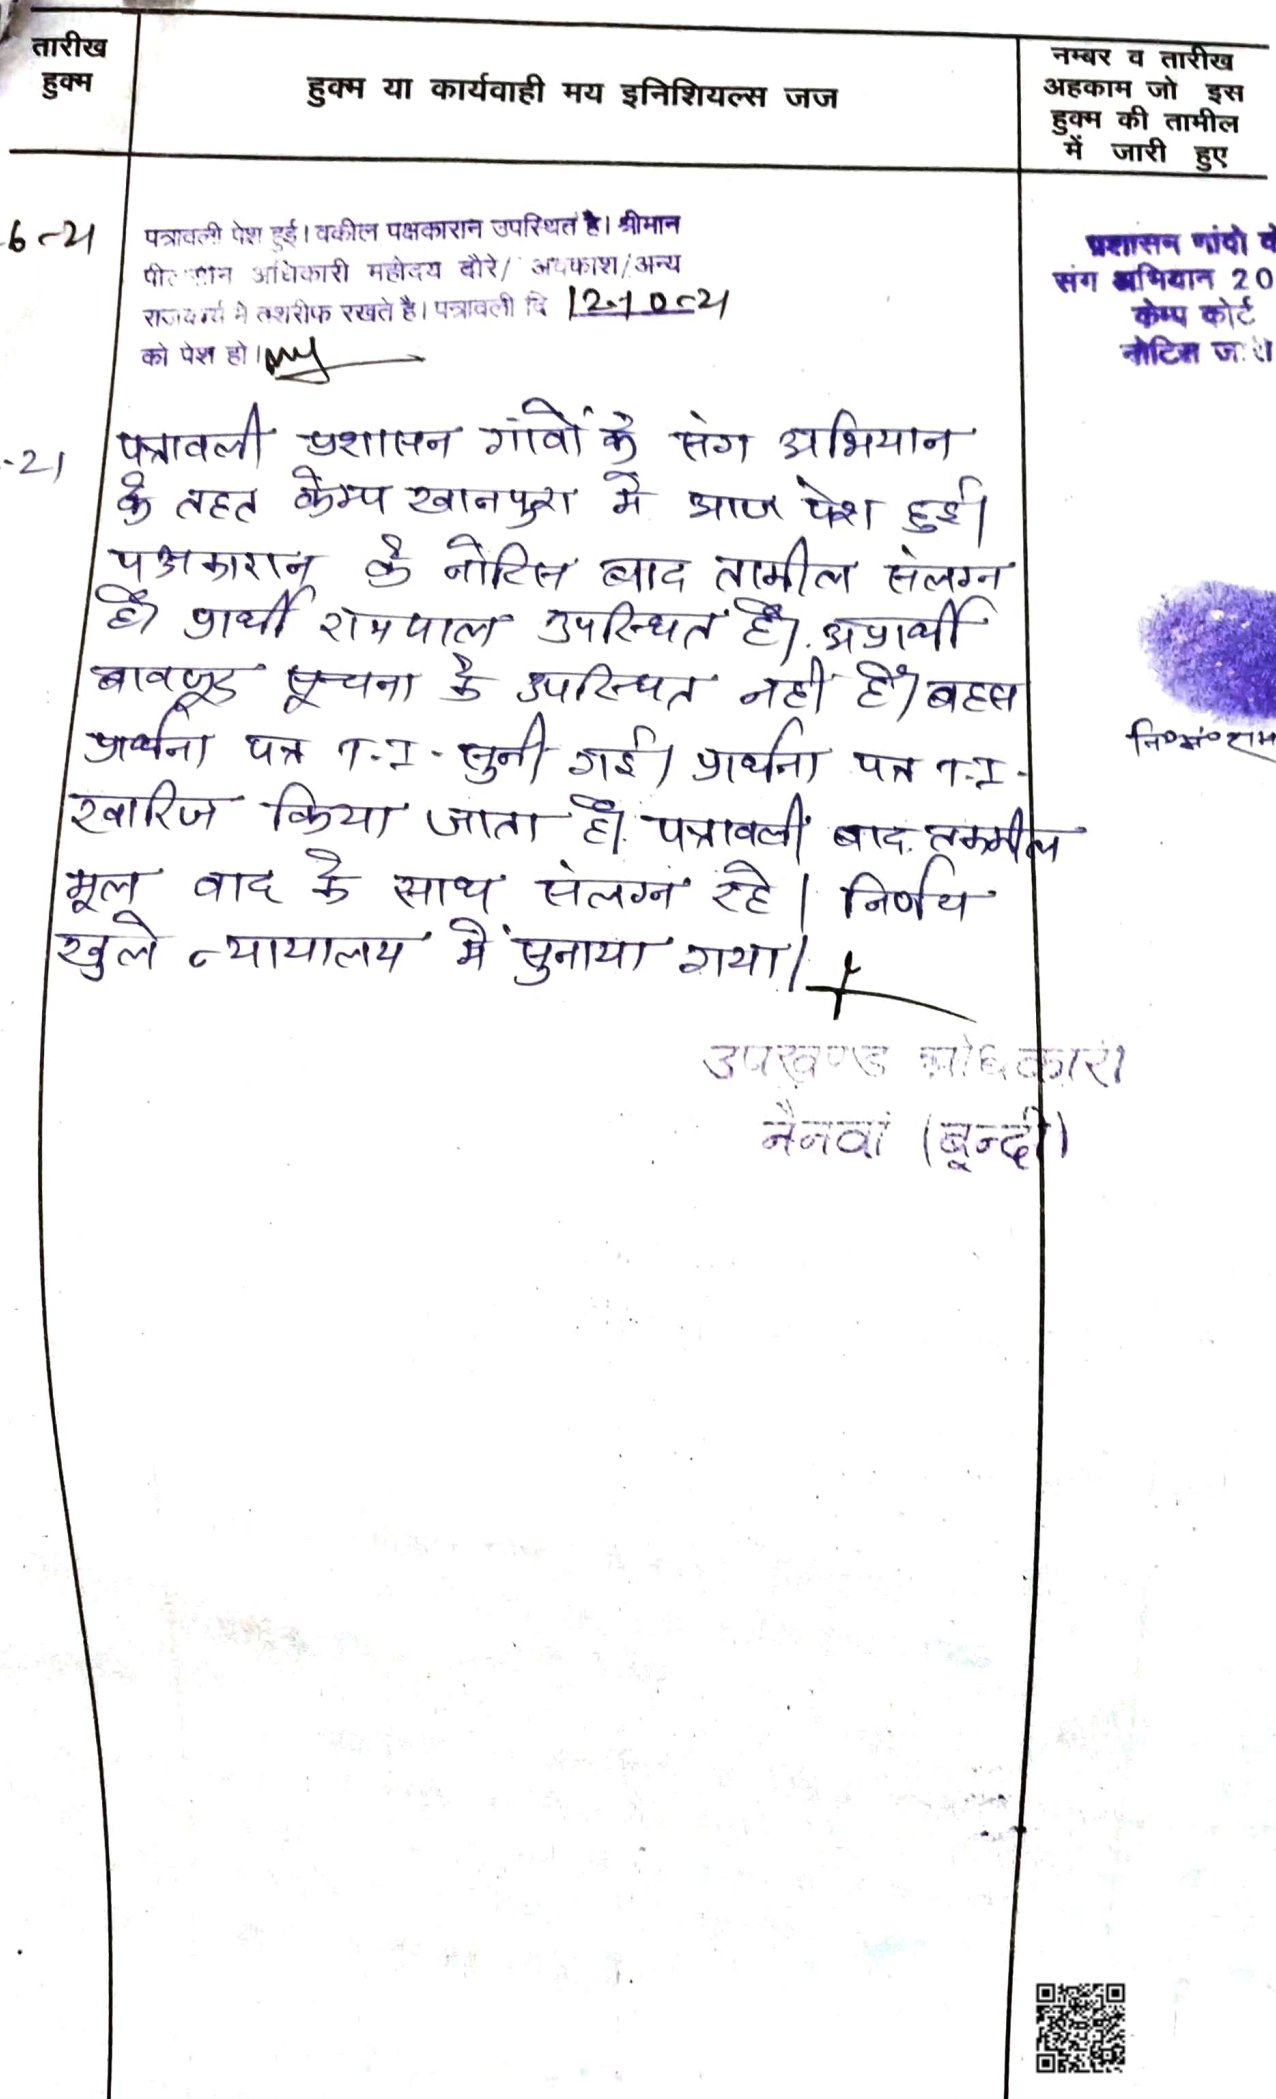 तारीख
हुक्म
हुक्म या कार्यवाही मय इनिशियल्स जज
नम्बर व तारीख
अहकाम जो इस
हुक्म की तामील
में जारी हुए
6-21
पत्रावली पेश हुई। वकील पक्षकारान उपस्थित है। श्रीमान
अधिकारी महोदय दौरे/ अवकाश/अन्य
राजकार्य मे तशरीफ रखते है। पत्रावली दि 12.10-21
को पेश हो।
प्रशासन गांवो
संग अभियान 20
केम्प कोर्ट
नोटिस
-21
पत्रावली प्रशासन गांवों के संग अभियान
के तहत केम्प खानपुरा में आज पेश हुई।
पक्षकारान के नोटिस बाद तामील संलग्न
है। प्रार्थी रामपाल उपस्थित है। अप्रार्थी
बावजूद सूचना के उपस्थित नही है। बहस
प्रार्थना पत्र T.I. सुनी गई। प्रार्थना पत्र T.I.
खारिज किया जाता है। पत्रावली बाद तकमील
मूल वाद के साथ संलग्न रहे। निर्णय
खुले न्यायालय में सुनाया गया।
नि०अं० राम
उपखण्ड अधिकारी
नैनवां (बून्दी)